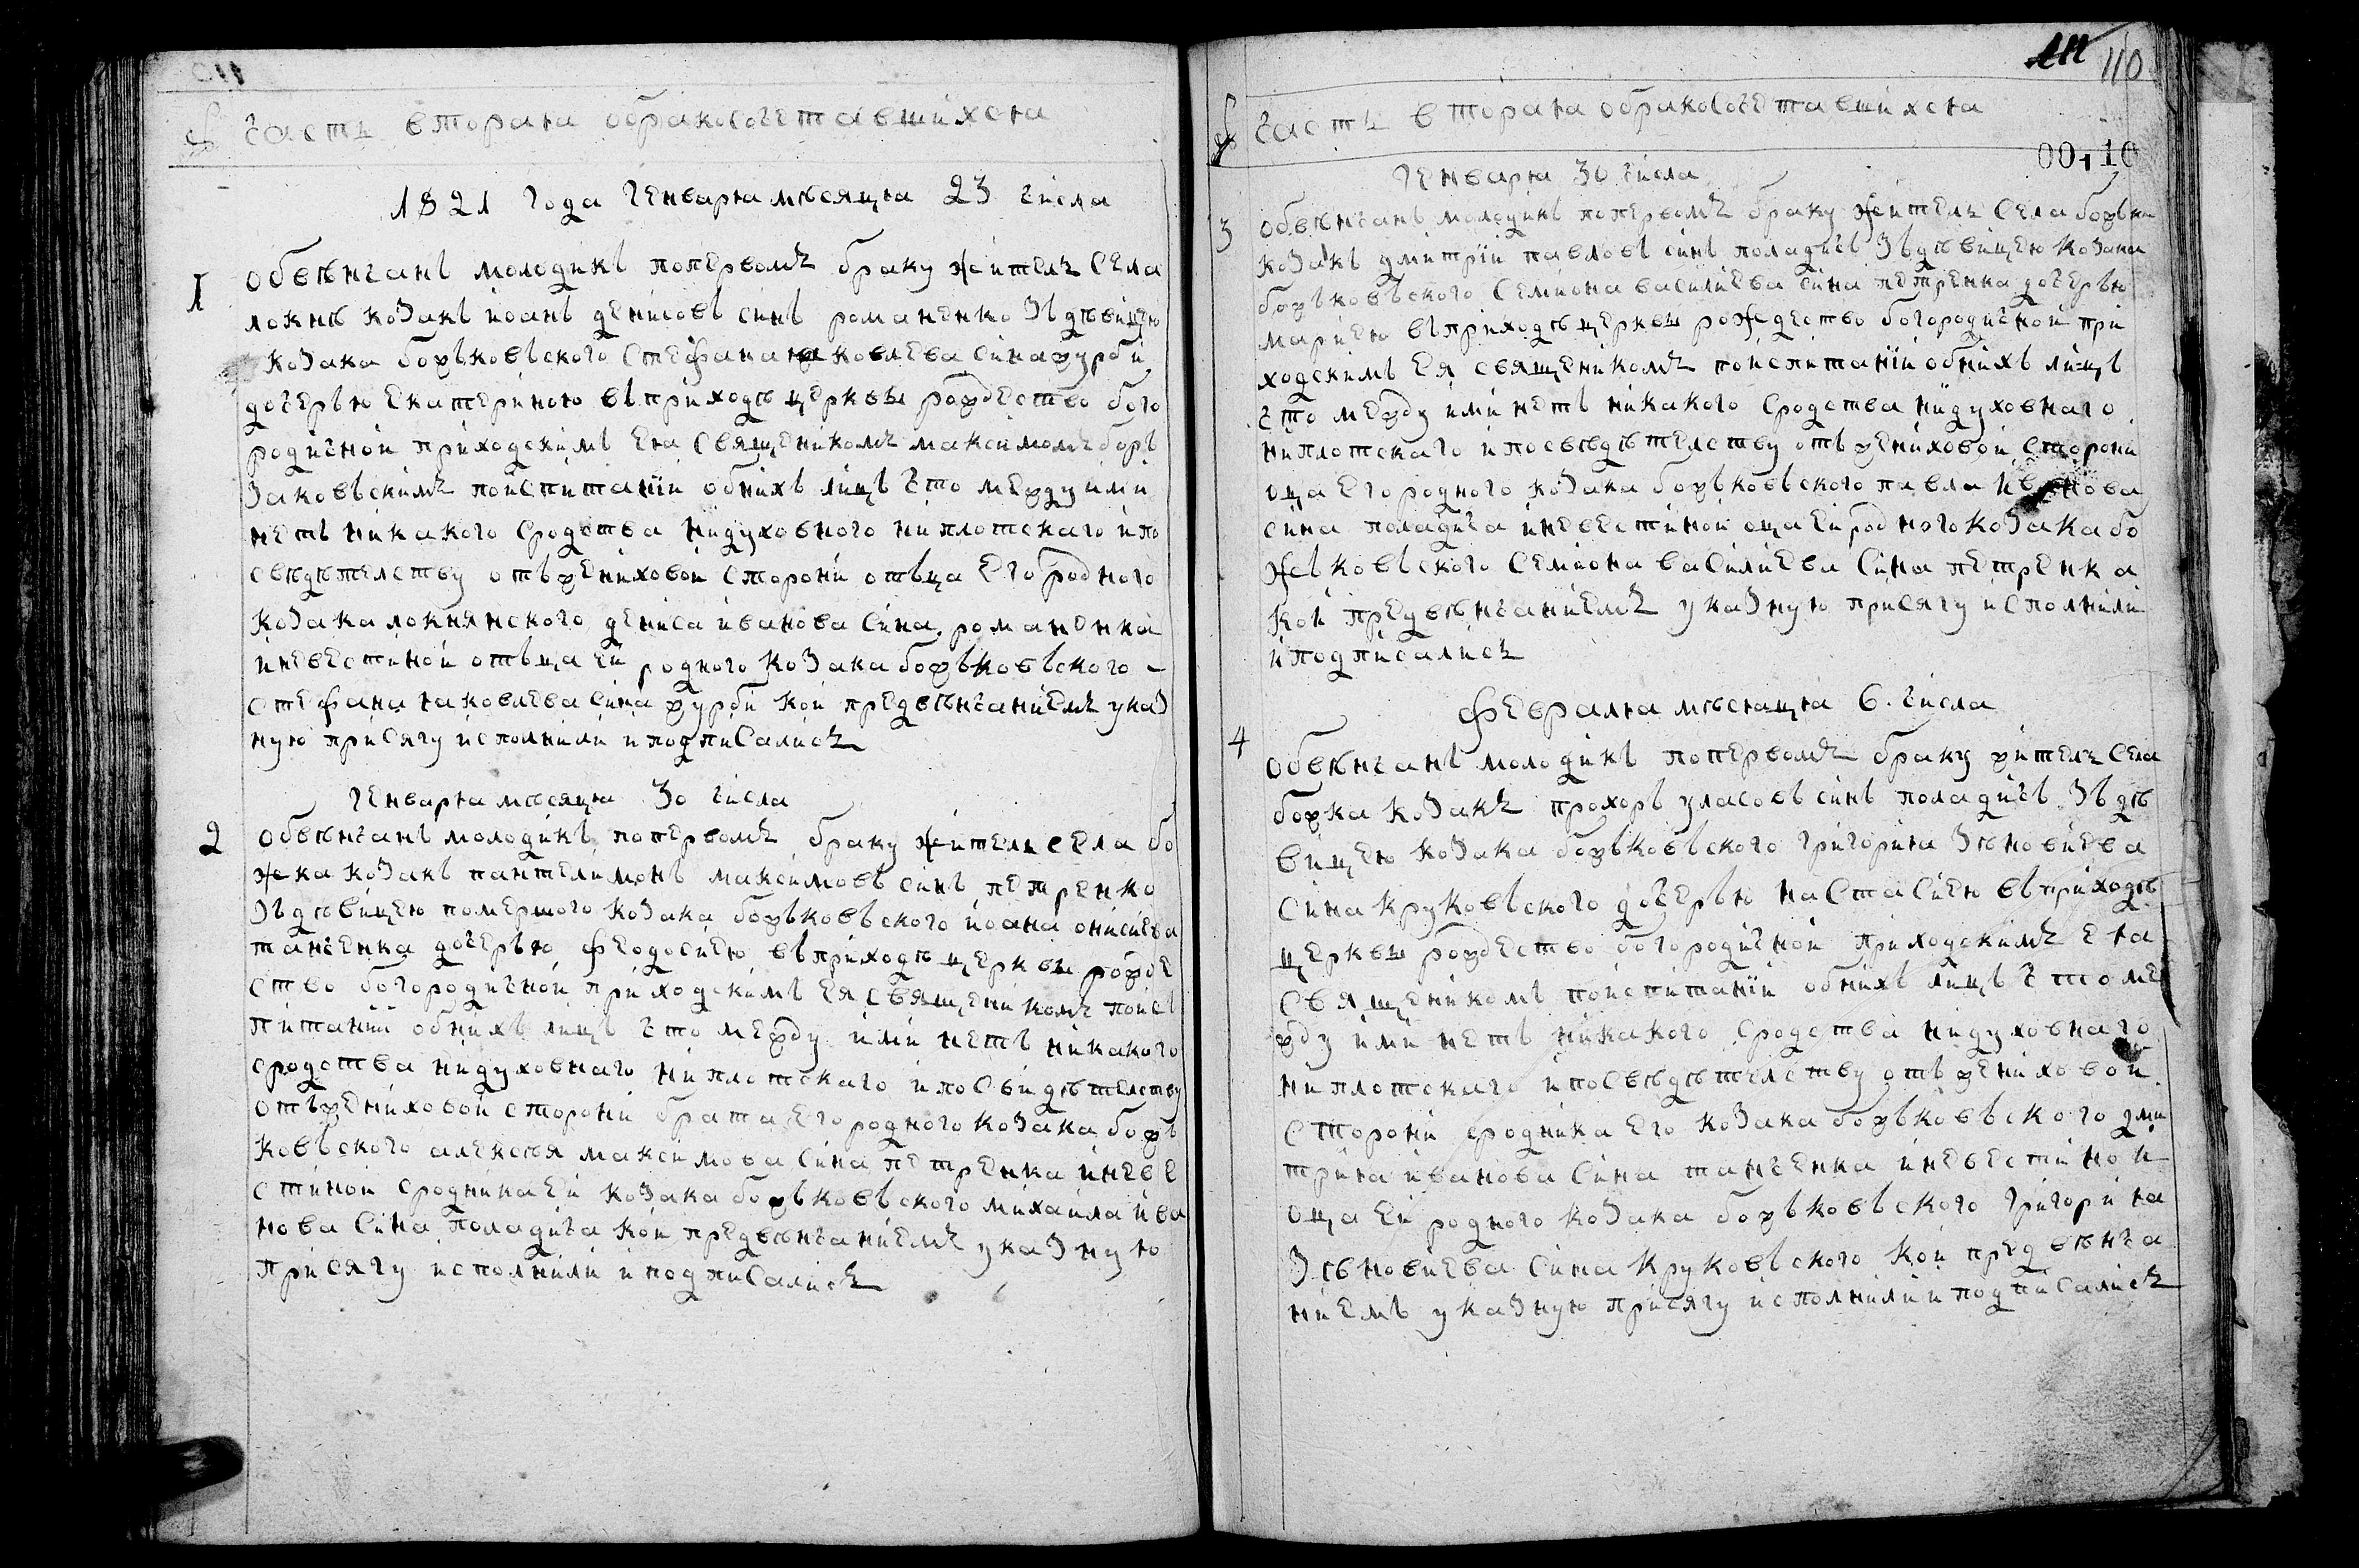 часть вторая обракосочетавшихся
1821 года генваря мѣсяца 23 числа
1
обвѣнчанъ молодикъ поперво́мъ браку житель села
локнѣ козакъ иоанъ денисовъ синъ романенко зъдѣвицею
козака божъковъского стефана яковлева сина журби
дочерью екатериною въприходѣ церквы рождество бого
родичной приходскимъ ея священикомъ максимомъ борь
заковъскимъ поиспитаніи обнихъ лицъ что между ими
нетъ никакого сродства нидуховного ниплотскаго ипо
свѣдѣтелству отъжениховой сторони отьца его родного
козака локнянского дениса иванова сина романенка
иневестиной отьца ей родного козака божъковъского
стефана яковлева сина журби кои предвѣнчаниемъ указ
ную присягу исполнили иподписались
генваря мѣсяца 30 числа
2
обвѣнчанъ молодикъ попервомъ браку житель села бо
жка козакъ пантелимонъ максимовъ синъ петренко
зъдѣвицею помершого козака божъковъского иоана онисиева
танченка дочерью феодосиею въприходѣ церквы рожде
ство богородичной приходскимъ ея священикомъ поисъ
питаніи обнихъ лицъ что между ими нетъ никакого
сродства нидуховнаго ниплотскаго ипосвидѣтелству
отъжениховой сторони брата его родного козака божъ
ковъского алексѣя максимова сина петренка иневе
стиной сродника ей козака божъковъского михаила ива
нова сина поладича кои предвѣнчаниемъ указную
присягу исполнили иподписались
110
часть вторая обракосочетавшихся
генваря 30 числа
3
обвѣнчанъ молодикъ попервомъ браку житель села божки
козакъ дмитрій павловъ синъ поладичъ зъдѣвицею козака
божъковъского семиона василиева сина петренка дочерью
мариею въприходѣ церквы рождество богородичной при
ходскимъ ея священикомъ поиспитаніи обнихъ лицъ
что между ими нетъ никакого сродства нидуховнаго
ниплотскаго ипосвѣдѣтелству отъ жениховой сторони
оца его родного козака божъковъского павла иванова
сина поладича иневестиной оца ей родного козака бо
жъковъского семиона василиева сина петренка
кои предвѣнчаниемъ указную присягу исполнили
иподписались
февраля мѣсяца 6. числа
4
обвѣнчанъ молодикъ попервомъ браку житель села
божка козакъ прохоръ уласовъ синъ поладичъ зъдѣ
вицею козака божъковъского григория зѣновиева
сина круковъского дочерью настасиею въприходѣ
церквы рождество богородичной приходскимъ ея
священикомъ поиспитаніи обнихъ лицъ что ме
жду ими нетъ никакого сродства нидуховнаго
ниплотскаго ипосвѣдѣтелству отъ жениховой
сторони сродника его козака божъковъского дми
трия иванова сина танченка иневестиной
оца ей родного козака божъковъского григория
зѣновиева сина круковъского кои предвѣнча
ниемъ указную присягу исполнили иподписались